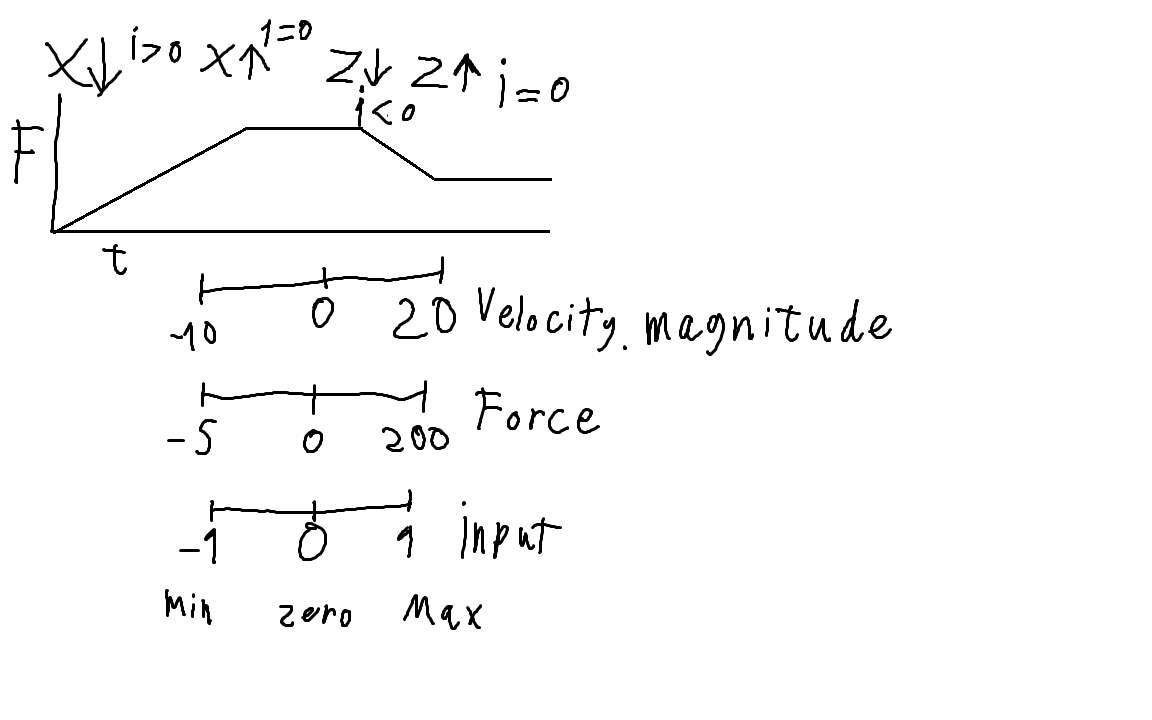 X↓ i>0 X↑ 1=0 Z↓ Z↑ i=0
i<0
F
t
-10 0 20 Velocity. magnitude
-5 0 200 Force
-1 0 1 input
Min zero Max